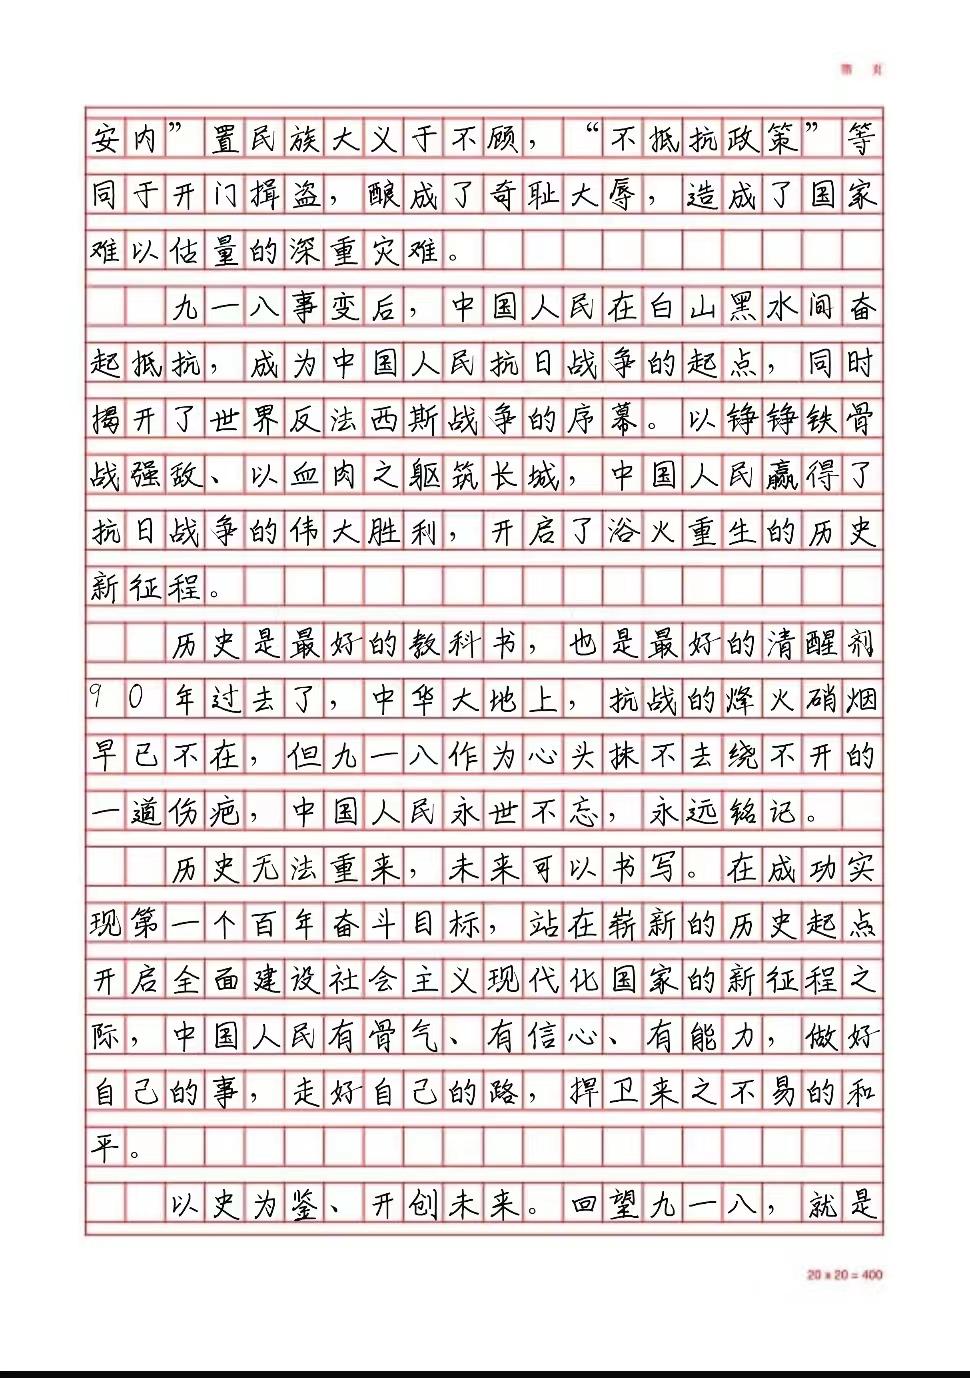 第 页
安内”置民族大义于不顾，“不抵抗政策”等
同于开门揖盗，酿成了奇耻大辱，造成了国家
难以估量的深重灾难。
九一八事变后，中国人民在白山黑水间奋
起抵抗，成为中国人民抗日战争的起点，同时
揭开了世界反法西斯战争的序幕。以铮铮铁骨
战强敌、以血肉之躯筑长城，中国人民赢得了
抗日战争的伟大胜利，开启了浴火重生的历史
新征程。
历史是最好的教科书，也是最好的清醒剂
90年过去了，中华大地上，抗战的烽火硝烟
早已不在，但九一八作为心头抹不去绕不开的
一道伤疤，中国人民永世不忘，永远铭记。
历史无法重来，未来可以书写。在成功实
现第一个百年奋斗目标，站在崭新的历史起点
开启全面建设社会主义现代化国家的新征程之
际，中国人民有骨气、有信心、有能力，做好
自己的事，走好自己的路，捍卫来之不易的和
平。
以史为鉴、开创未来。回望九一八，就是
20x20=400